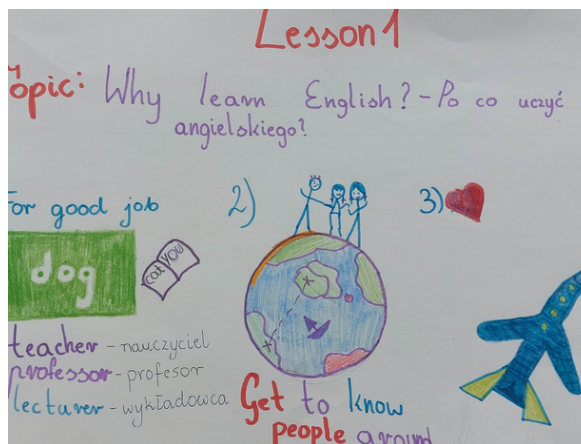 Lesson 1
Topic: Why learn English? - Po co uczyć
angielskiego?
For good job
dog
cat YOU
teacher - nauczyciel
professor - profesor
lecturer - wykładowca
2)
Get to know
people around
3)